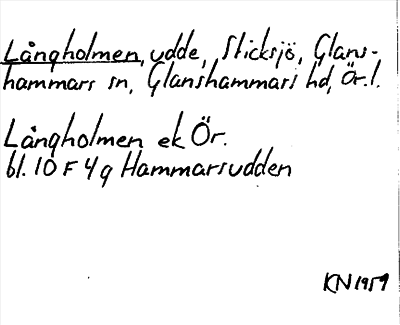 Långholmen, udde, Sticksjö, Glans-
hammars sn, Glanshammars hd, Ör. l.
Långholmen ek Ör.
bl. 10 F 4 g Hammarsudden
KN 1959